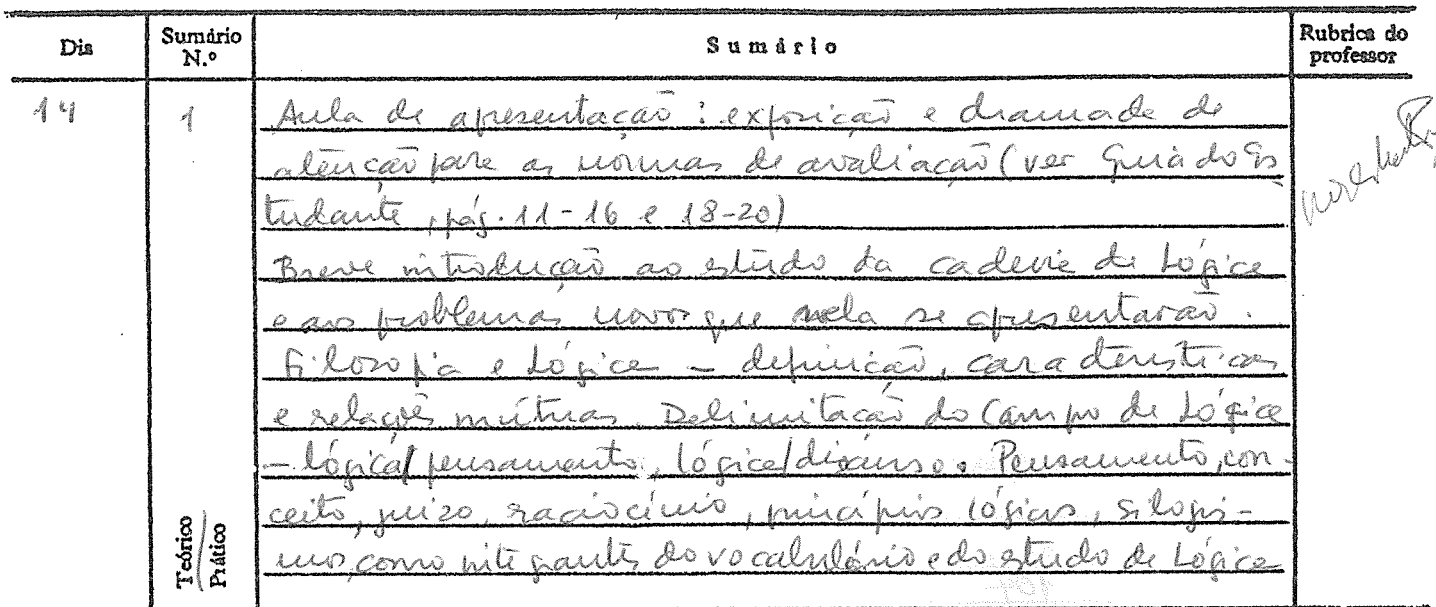 Dia Sumário N.º Sumário Rubrica do professor
14 1 Aula de apresentação: exposição e chamada de
atenção para as normas de avaliação (ver Guia do Es
tudante, pág. 11-16 e 18-20)
Breve introdução ao estudo da cadeira de Lógica
e aos problemas novos que nela se apresentarão.
Filosofia e Lógica - definição, características
e relações mútuas. Delimitação do Campo de Lógica
- lógica/pensamento, lógica/discurso. Pensamento, con-
ceito, juizo, raciocínio, princípios lógicos, silogis-
mos, como integrantes do vocabulário e do estudo de Lógica
Teórico/Prático